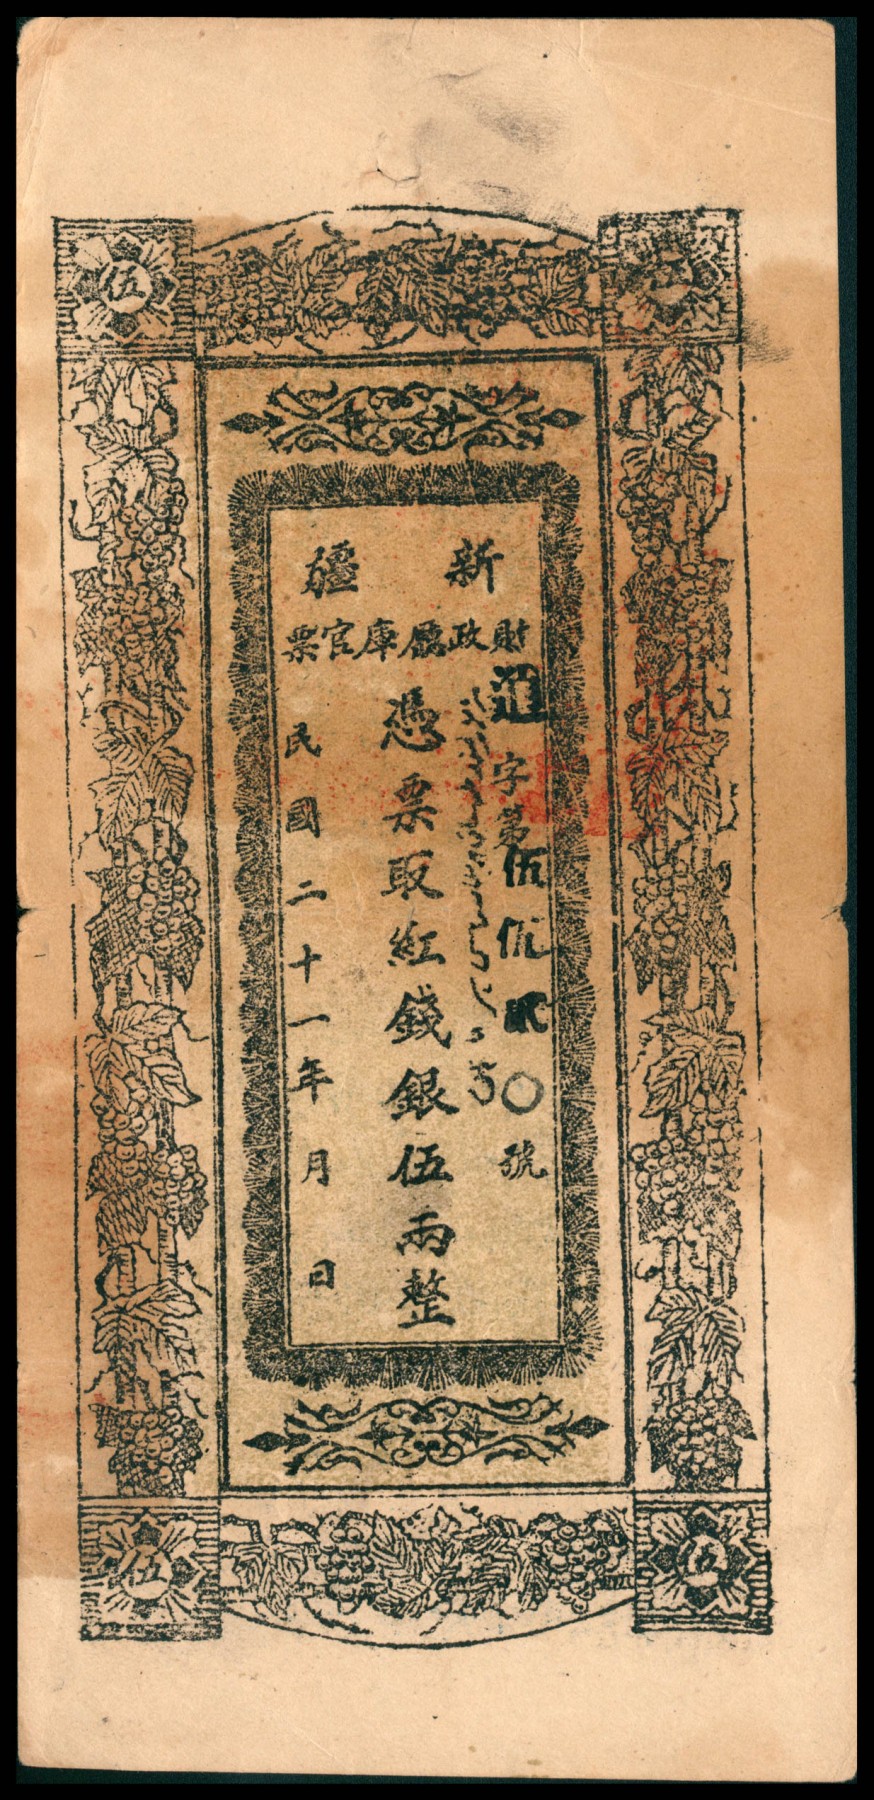 伍
伍
新疆
財政廳庫官票
進字第伍佰貳〇號
憑票取紅錢銀伍兩整
民國二十一年 月 日
伍
伍